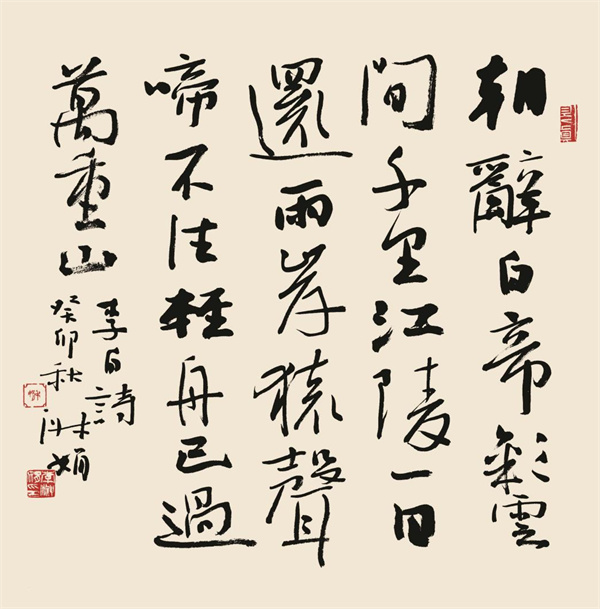 朝辭白帝彩雲
間千里江陵一日
還兩岸猿聲
啼不住輕舟已過
萬重山
李白詩
癸卯秋